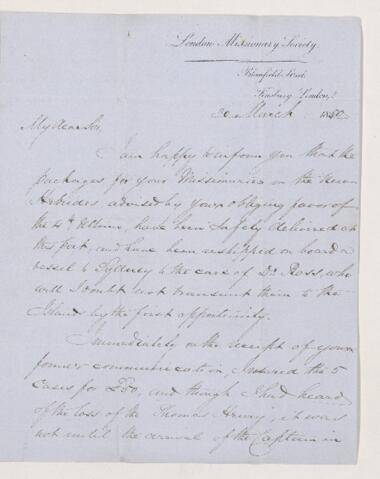 London Missionary Society,
Blomfield Street,
Finsbury, London,
30 March 18
My dear Sir,
I am happy to inform you that the
packages for your Missionaries in the New
Hebrides advised by your obliging favor of
the 4th Ultimo, have been safely delivered at
this port and have been reshipped on board a
vessel to Sydney to the care of Dr. Ross, who
will I doubt not transmit them to the
Island by the first opportunity.
Immediately on the receipt of your
former communication, I insured the 5
cases for £80, and though I had heard
of the loss of the Thomas Henry, it was
not until the arrival of the Captain in